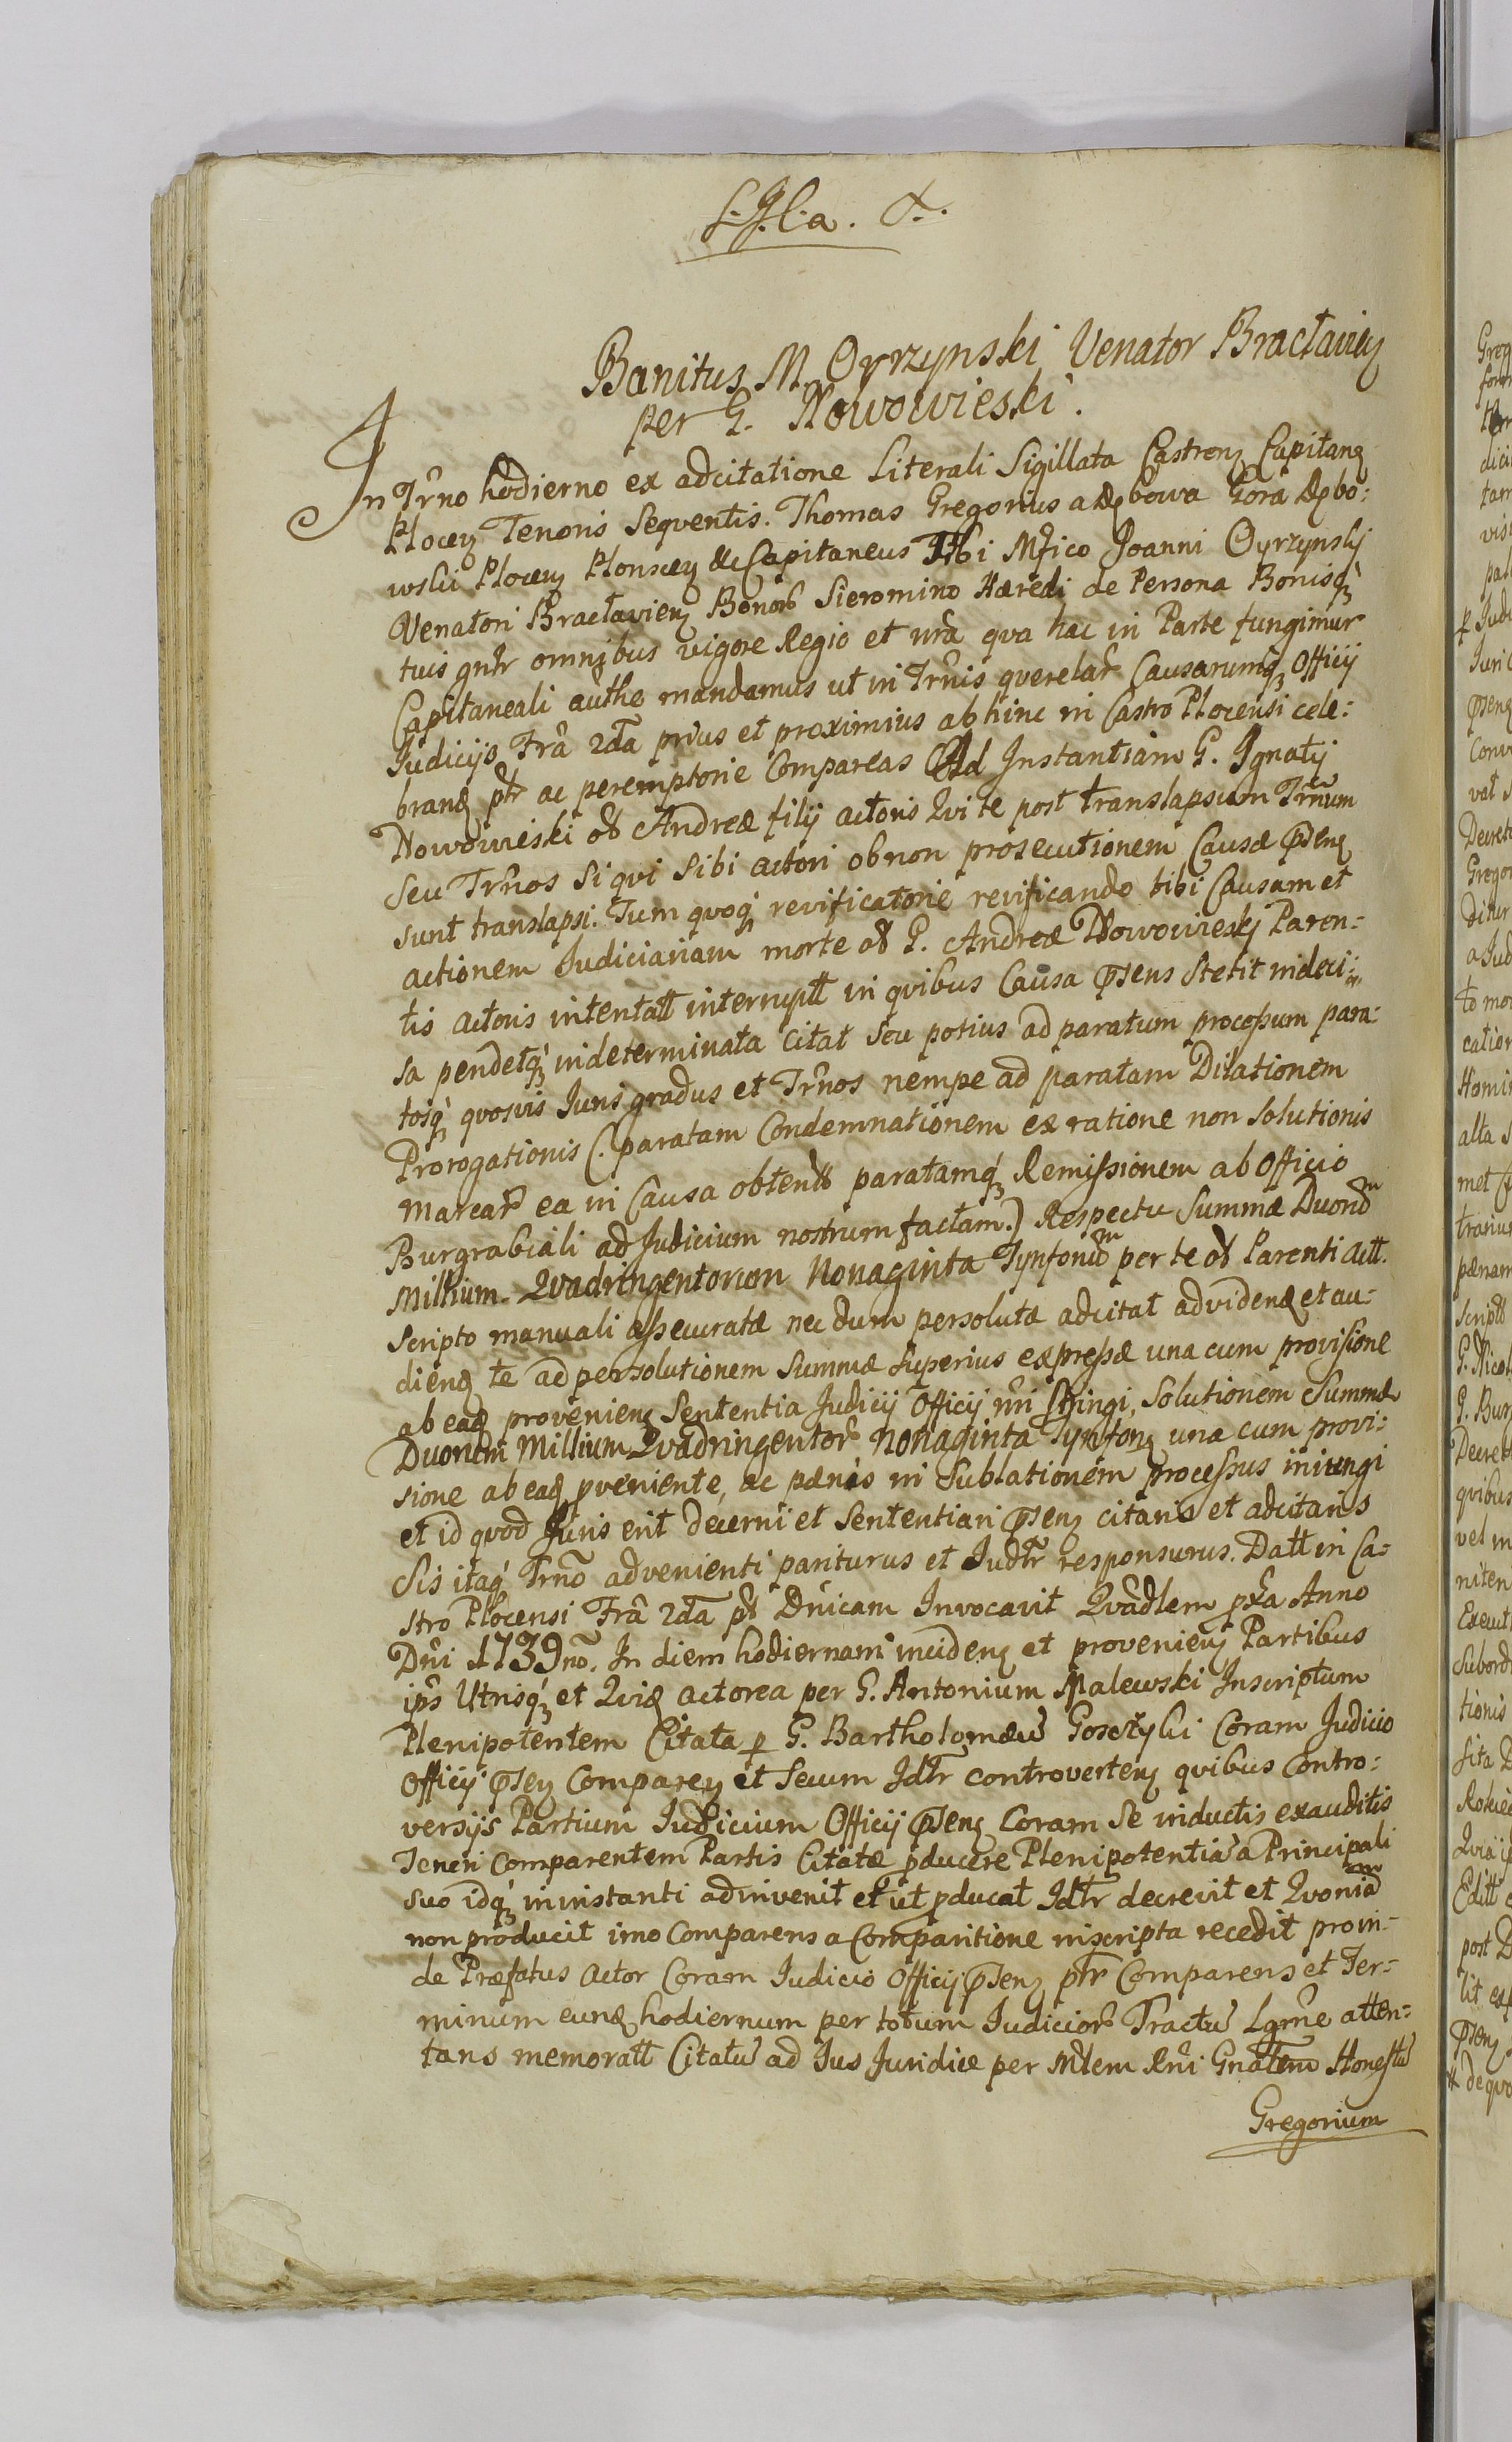 Banitus M. Oyrzynski Venator Braclavien
per G. Nowowieski.
In Trno hodierno ex adcitatione Literali Sigillata Castren Capitan
Plocen Tenoris Sequentis. Thomas Gregorius a Dębowa Gora Dębo:
wski Plocen Plonscen &c Capitaneus Tibi Mfico Joanni Oyrzynski
Venatori Braclavien Bonor Sieromino Hæredi de Persona Bonisq
tuis gnlr omnibus vigore Regio et nra qva hac in Parte fungimur
Capitaneali authe mandamus ut in Trnis querelar Causarumq Officij
Judicijs Fra 2da prius et proximius abhinc in Castro Plocensi cele:
brand ptr ac peremptorie Compareas Ad Instantiam G. Ignatij
Nowowieski od Andreæ filij actoris Qvi te post translapsum Trnum
Seu Trnos Si qvi Sibi actori ob non prosecutionem Causæ psen
sunt translapsi. Tum quoq revificatorie revificando tibi Causam et
actionem Judiciariam morte od G. Andreæ Nowowieski Paren-
tis actoris intentatt interruptt in qvibus Causa psens Stetit indeci:
sa pendetq indeterminata Citat Seu potius ad paratum processum para:
tosq qvosvis Juris gradus et Trnos nempe ad paratam Dilationem
Prorogationis (: paratam Condemnationem ex ratione non Solutionis
marcar ea in Causa obtent paratamq Remissionem ab Officio
Burgrabiali ad Judicium nostrum factam.) Respectu Summæ Duorum
Millium Qvadringentorum Nonaginta Tynfonum per te od Parenti Actt.
Scripto manuali assecuratæ nec dum persolutæ adcitat ad viden et au-
dien te ad persolutionem Summæ Superius expressæ una cum provisione
ab ead provenien Sententia Judicij Officij nri Stringi, Solutionem Summæ
Duorum Millium Qvadringentor Nonaginta Tynfon una cum provi:
sione ab ead pveniente, ac pænis in Sublationem processus iniungi
et id quod Juris erit decerni et Sententiari psen citaris et adcitaris
Sis itaq Trno advenienti pariturus et Judtr responsurus. Datt in Ca:
stro Plocensi Fra 2da pt Dnicam Invocavit Qvadlem pxa Anno
Dni 1739no. In diem hodiernam inciden et provenien Partibus
ips Utrisq et Qvid actorea per G. Antonium Malewski Inscriptum
Plenipotentem Citata p G. Bartholomæu Coram Judicio
Officij psen Comparen et Secum Jdtr controverten qvibus Contro:
versijs Partium Judicium Officij psen Coram Se inductis exauditis
Teneri Comparentem Partis Citatæ pducere Plenipotentia a Principali
Suo idq in instanti adinvenit et ut pducat Jdtr decrevit et Qvoniam
non producit imo Comparens a Comparitione inscripta recedit proin-
de Præfatus Actor Coram Judicio Officij psen ptr Comparens et Ter-
minum eund hodiernum per totum Judicior Tractu Lgme atten:
tans memoratt Citatu ad Jus Juridice per Mlem Rni Gnalem Honestu
Gregorium